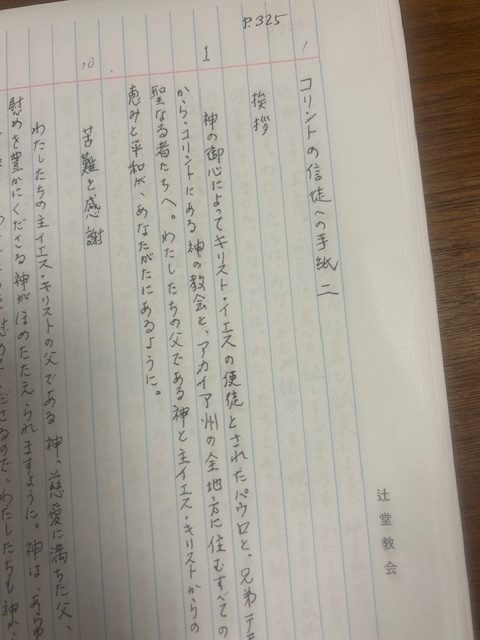 P.325
1
コリントの信徒への手紙 二
挨拶
神の御心によってキリスト・イエスの使徒とされたパウロと、兄弟テ
から、コリントにある神の教会と、アカイア州の全地方に住むすべての
聖なる者たちへ。わたしたちの父である神と主イエス・キリストからの
恵みと平和が、あなたがたにあるように。
苦難と感謝
わたしたちの主イエス・キリストの父である神、慈愛に満ちた父、
慰めを豊かにくださる神がほめたたえられますように。神は、あらゆ
めてくださるので、わたしたちも神か
辻堂教会